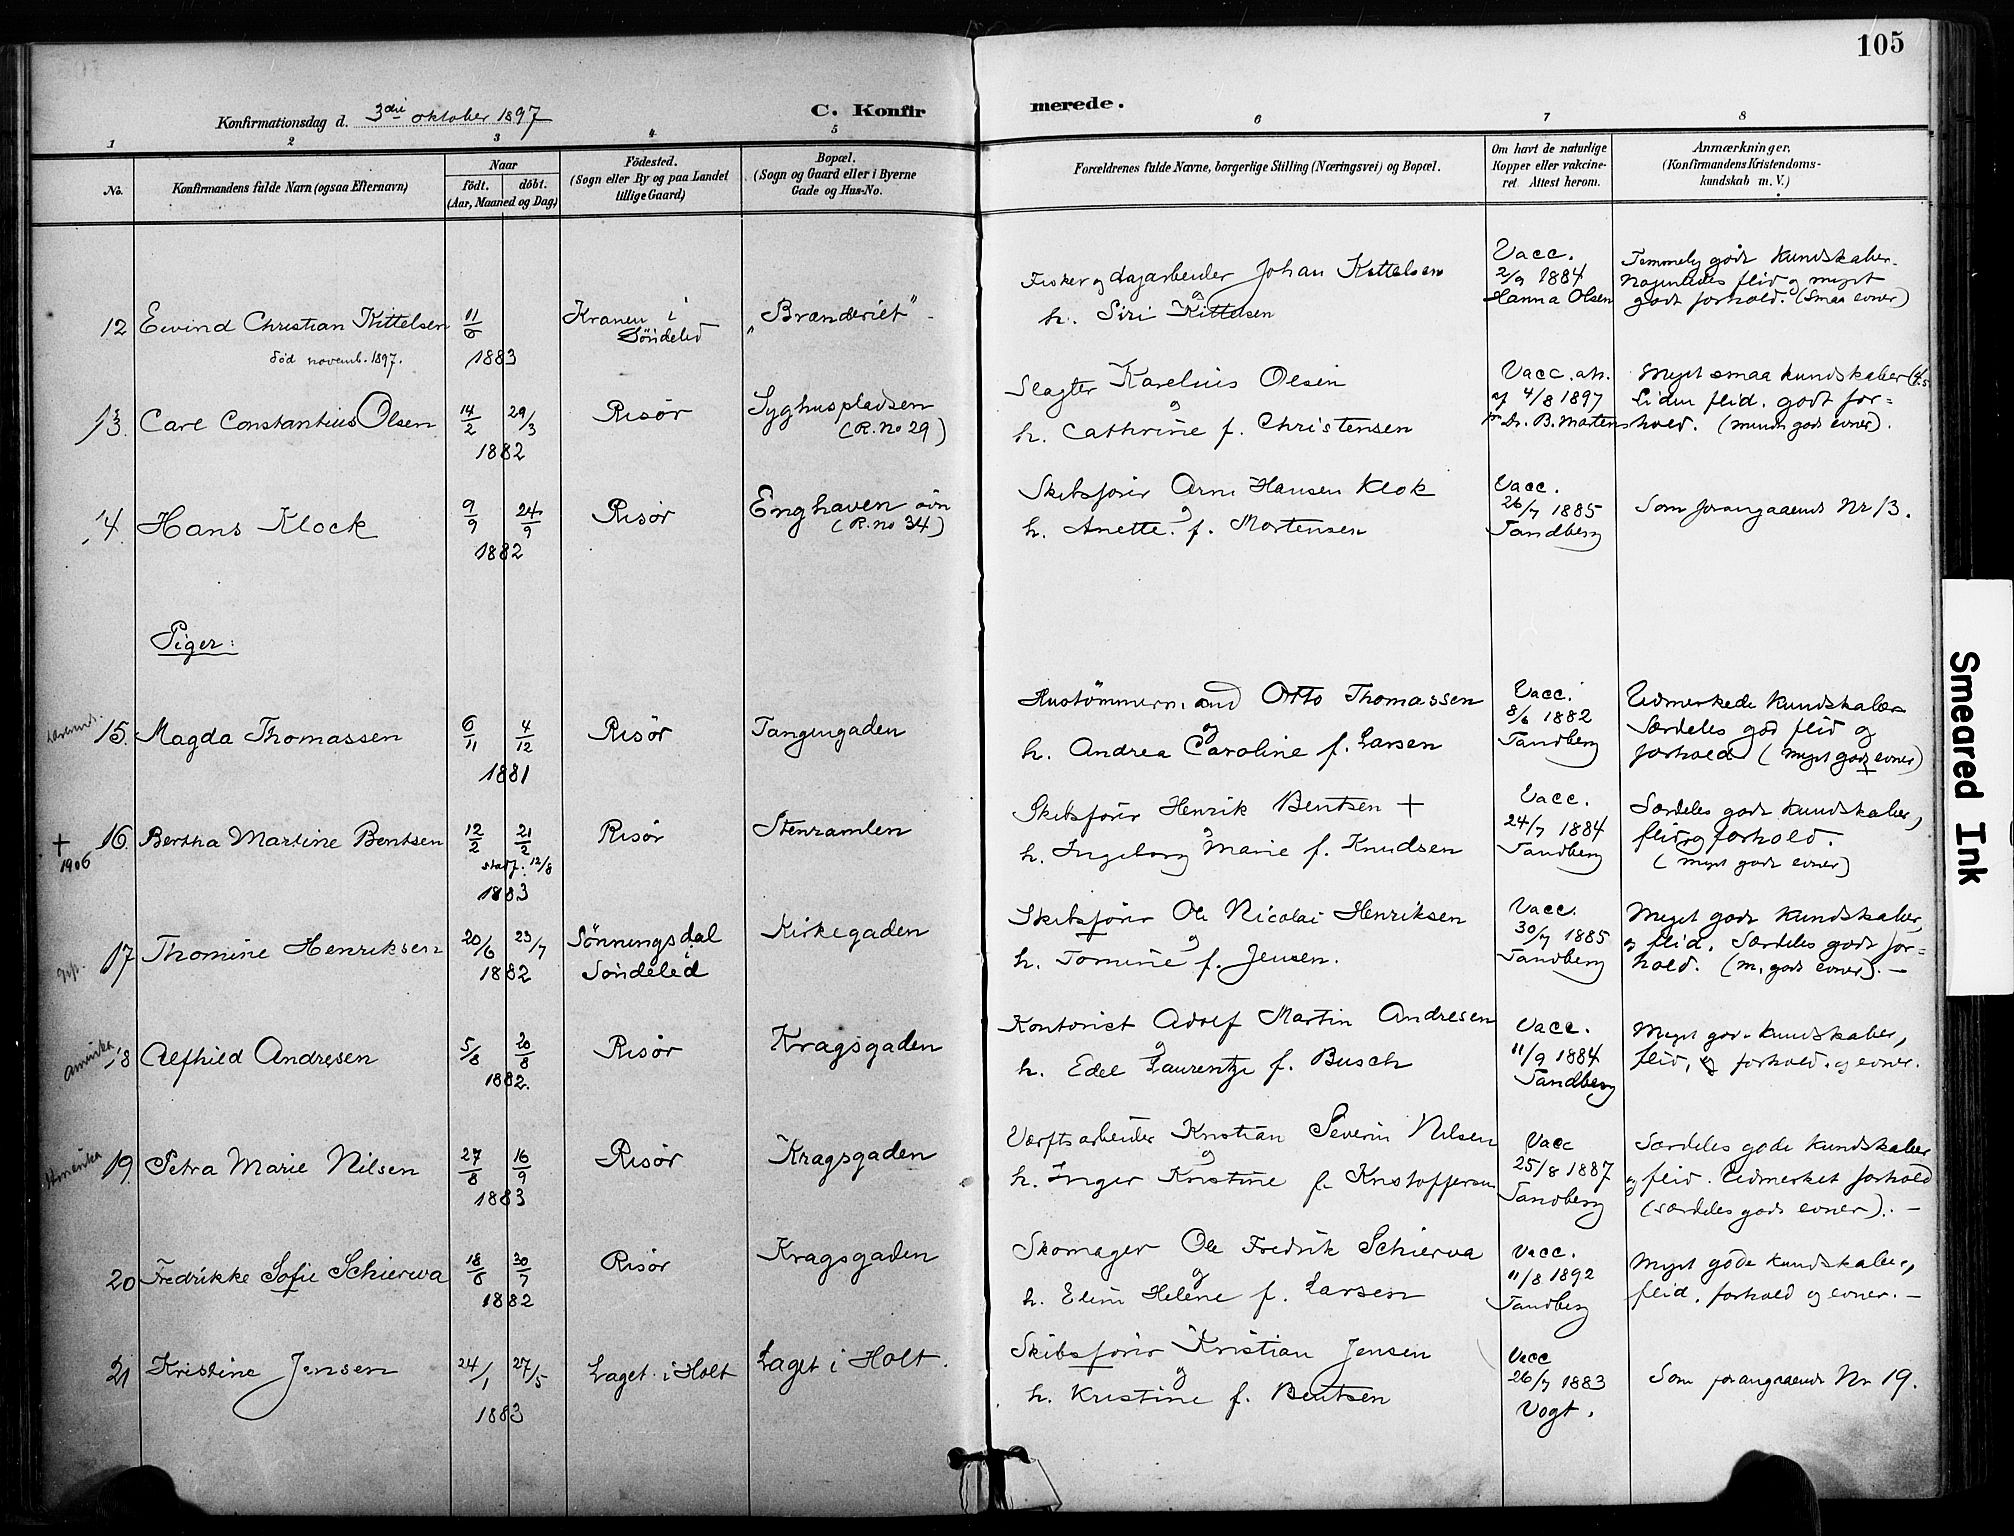 105
Konfirmationsdag d. 3die oktober 1897
C. Konfirmerede.
1 2 3 4 5 6 7 8
No.
Konfirmandens fulde Navn (ogsaa Efternavn)
Naar
födt. döbt.
(Aar, Maaned og Dag)
Födested.
(Sogn eller By og paa Landet
tillige Gaard)
Bopæl.
(Sogn og Gaard eller i Byerne
Gade og Hus-No.
Forældrenes fulde Navne, borgerlige Stilling (Næringsvei) og Bopæl.
Om havt de naturlige
Kopper eller vakcine-
ret Attest herom.
Anmærkninger.
(Konfirmandens Kristendoms-
kundskab m. V.)
12 Eivind Christian Kittelsen
død novemb. 1897.
11/6
1883
Kranen i
Söndeled
"Brænderiet"
Fisker og dagarbeider Johan Kittelsen
og
h. Siri Kittelsen
Vacc.
2/9 1884
Hanna Olsen
Temmelig gode kundskaber.
Nogenledes flid og meget
godt forhold. (smaa evner)
13. Carl Constantius Olsen
14/2 29/3
1882
Risør
Syghuspladsen
(R. no 29)
Slagter Karelius Olsen
og
h. Cathrine f. Christensen
Vacc. att.
af 4/8 1897
fr Dr. B. Mortens
Meget smaa kundskaber
Liden flid. godt for=
hold. (mindre gode evner).
14. Hans Klock
9/9 24/9
1882
Risør
Enghaven
(R. no 34)
Skibsfører Arne Hansen Klok
og
h. Anette f. Mortensen
Vacc.
26/7 1885
Tandberg
Som forangaaende Nr 13.
Piger:
15. Magda Thomassen
6/11 4/12
1881
Risør
Tangengaden
Hustömmermand Otto Thomassen
og
h. Andrea Caroline f. Larsen
Vacc.
8/6 1882
Tandberg
Udmerkede kundskaber
Særdeles god flid og
forhold (meget gode evner)
+
1906
16. Bertha Martine Bentsen
12/2 21/2
stadf. 12/8
1883
Risør
Stenramlen
Skibsfører Henrik Bentsen +
og
h. Ingeborg Marie f. Knudsen
Vacc.
24/7 1884
Tandberg
Særdeles gode kundskaber,
flid og forhold.
(meget gode evner)
17 Thomine Henriksen
20/6 23/7
1882
Sönningsdal
i
Söndeled
Kirkegaden
Skibsfører Ole Nicolai Henriksen
og
h. Tomine f. Jensen.
Vacc.
30/7 1885
Tandberg
Meget gode kundskaber,
og flid. Særdeles godt for=
hold. (m. gode evner). —
Amerika
18 Alfhild Andresen
5/8 20/8
1882.
Risør
Kragsgaden
Kontorist Adolf Martin Andresen
og
h. Edel Laurentze f. Busch
Vacc.
11/9 1884
Tandberg
Meget gode kundskaber,
flid, og forhold. og evner.
Amerika
19. Petra Marie Nilsen
27/8 16/9
1883
Risør
Kragsgaden
Værftsarbeider Kristian Severin Nilsen
og
h. Inger Kristine f. Kristoffersen
Vacc
25/8 1887
Tandberg
Særdeles gode kundskaber
og flid. Udmerket forhold
(særdeles gode evner). —
20 Fredrikke Sofie Schierwa
18/6 30/7
1882
Risør
Kragsgaden
Skomager Ole Fredrik Schierwa
og
h. Eline Helene f. Larsen
Vacc.
11/8 1892
Tandberg
Meget gode kundskaber,
flid, forhold og evner. —
21 Kristine Jensen
24/1 27/5
1883
Laget i Holt
Laget i Holt.
Skibsfører Kristian Jensen
og
h. Kristine f. Bentsen
Vacc
26/7 1883
Vogt.
Som forangaaende Nr 19.
Smeared Ink